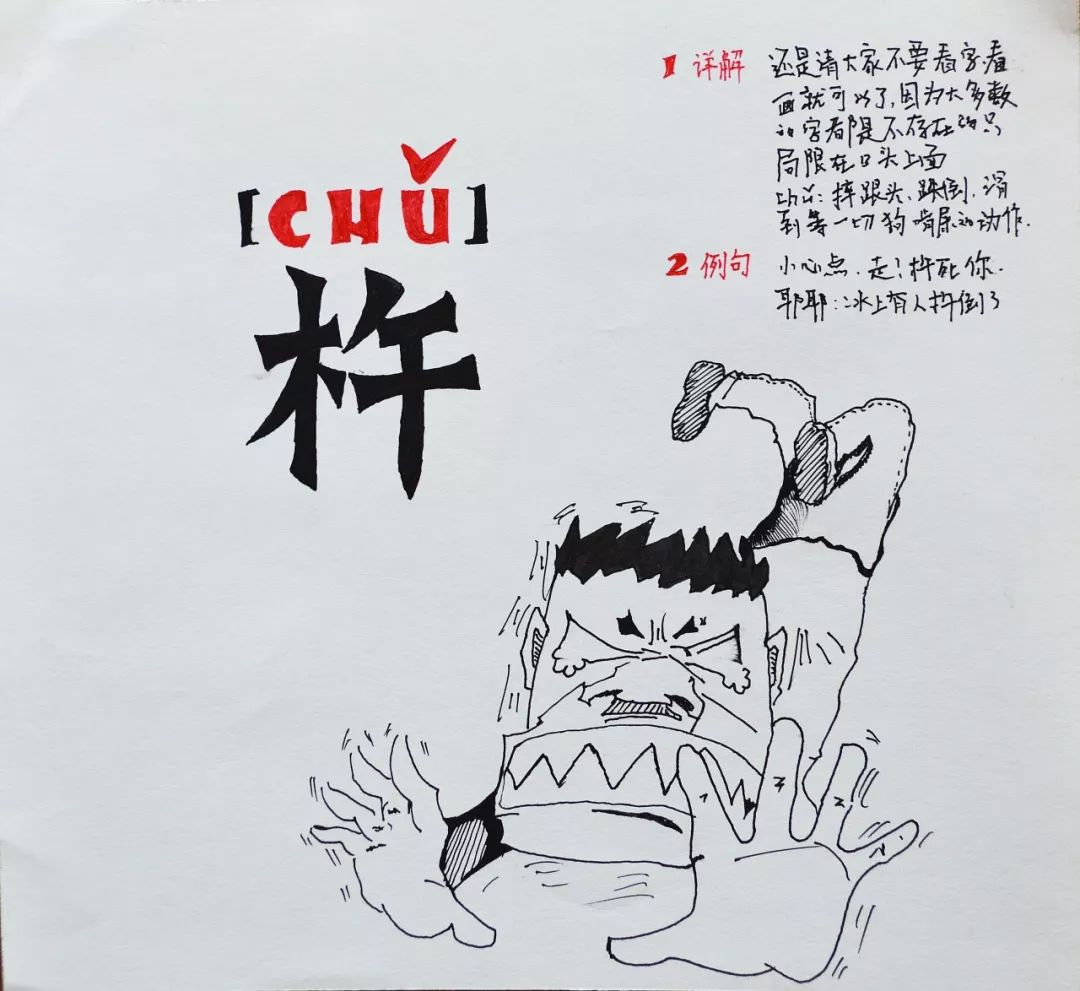 [CHǓ]
杵
1 详解 还是请大家不要看字.看
画就可以了,因为大多数
的字都是不存在的只
局限在口头上面
chǔ: 摔跟头、跌倝、滑
到等一切狗啃屎的动作.
2 例句 小心点.走!杵死你.
耶耶:冰上有人杵倒了